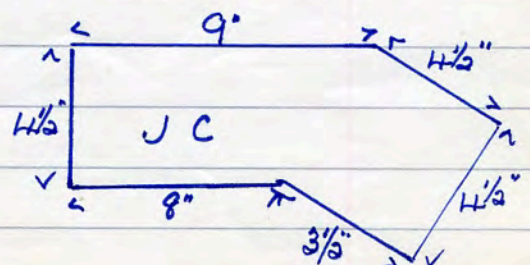 9"
4½"
4½"
J C
8"
4½"
3½"